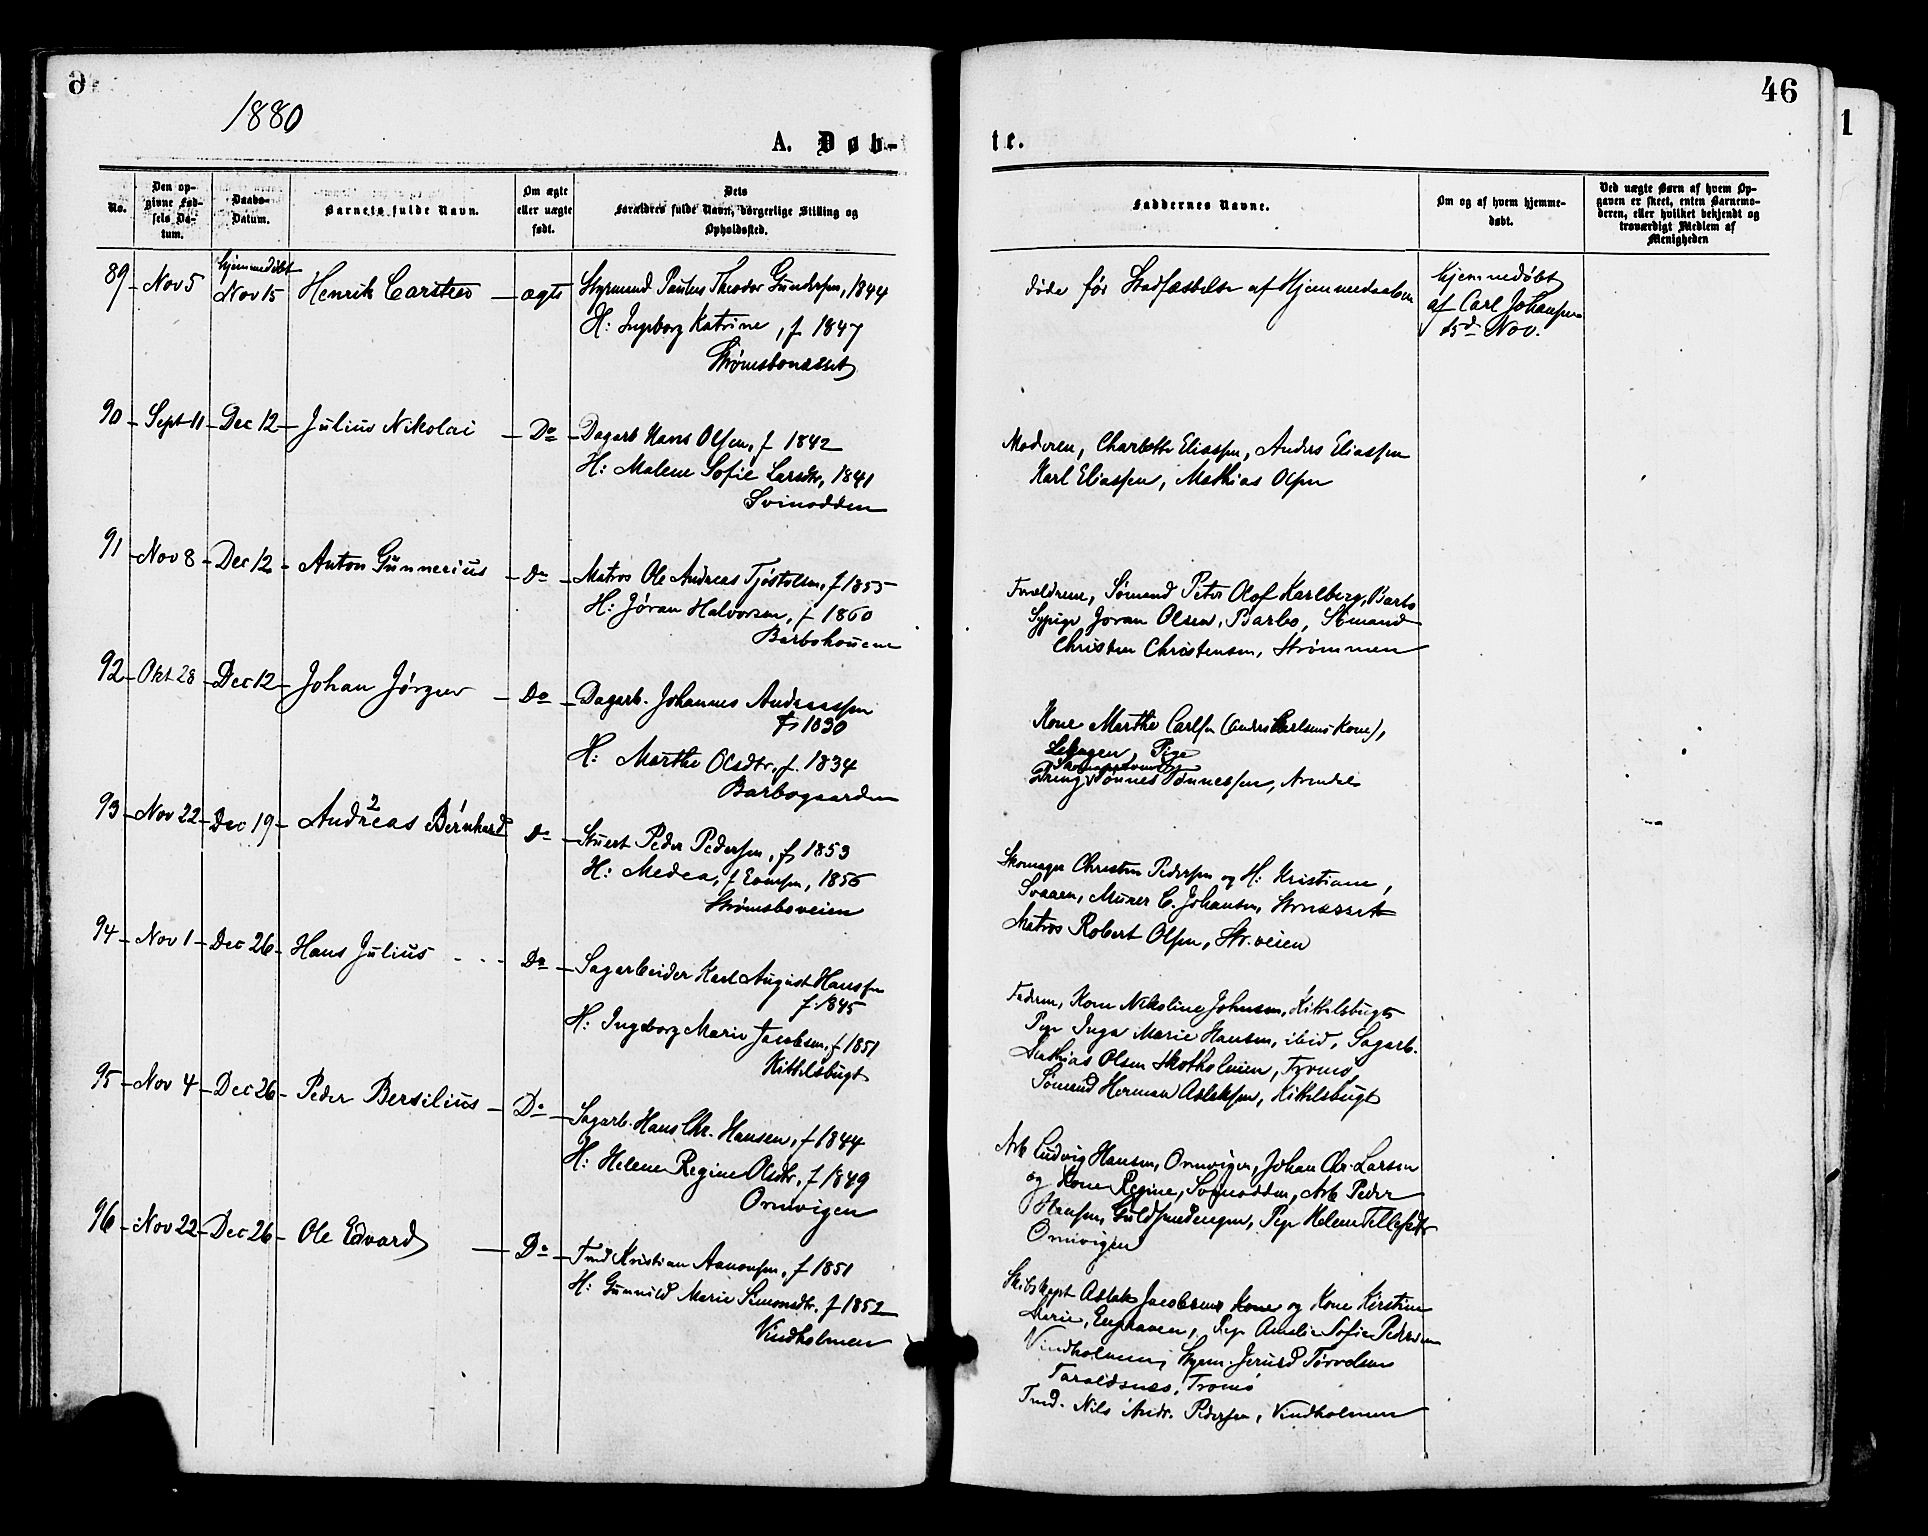 46
1
1880
A. Døb-
te.
No.
Den op-
givne Fød-
sels Da-
tum.
Daabs-
Datum.
Barnets fulde Navn.
Om ægte
eller uægte
født.
Dets
Forældres fulde Navn, borgerlige Stilling og
Opholdssted.
Faddernes Navne.
Om og af hvem hjemme-
døbt.
Ved uægte Børn af hvem Op-
gaven er skeet, enten Barnemo-
deren, eller hvilket bekjendt og
troværdigt Medlem af
Menigheden
89 Nov 5 hjemmedøbt
Nov 15 Henrik Carsten ægte Styrmand Paulus Theodor Gundersen, 1844
H: Ingeborg Katrine, f 1847
døde før Stadfæstelse af Hjemmedaaben
hjemmedøbt
af Carl Johansen
15d Nov.
90 Sept 11 Dec 12 Julius Nikolai Do Dagarb Hans Olsen, f 1842
H: Malene Sofie Larsdtr, 1841
Svinodden
Moderen, Charlotte Eliassen, Anders Eliassen
Karl Eliassen, Mathias Olsen
91 Nov 8 Dec 12 Anton Gunnerius Do Matros Ole Andreas Tjøstolsen, f 1855
H: Jøran Halvorsen, f 1860
Barbohouene
Forældrene, Sømand Peter Olof Karlberg, Barbo
Sypige Joran Olsen, Barbo, Sømand
Christen Christensen, Strømmen
92 Okt 28 Dec 12 Johan Jørgen Do Dagarb. Johannes Andreassen
f 1830
H: Marthe Olsdtr, f. 1834
Barbogaarden
Kone Marthe Carlsen (Anders Carlsens Kone),
Pige
Tønnes Tønnessen, Arendal
93 Nov 22 Dec 19 Andreas Bernhard Do Stuert Peder Pedersen, f 1853
H: Medea, f Evensen, 1856
Strømsboveien
Skomager Christen Pedersen og H: Kristiane,
Murer C. Johansen,
Matros Robert Olsen, Str. veien
94 Nov 1 Dec 26 Hans Julius Do Sagarbeider Karl August Hanssen
f. 1845
H: Ingeborg Marie Jacobsen, f 1851
Kittelsbugt
Faderen, Kone Nikoline Johnsen, Kittelsbugt
Pige Inga Marie Hansen, ibid, Sagarb.
Mathias Olsen Skotholmen, Tromø
Sømand Herman Aslaksen, Kittelsbugt
95 Nov 4 Dec 26 Peder Bersilius Do Sagarb. Hans Chr. Hansen, f 1844
H: Helene Regine Olsdtr, f 1849
Ormvigen
Arb Ludvig Hansen, Ormvigen, Johan Chr. Larsen
og Kone Regine, Svinodden, Arb Peder
Hansen, Guldsmedengen, Pige Helene Tellefsdtr
Ormvigen
96 Nov 22 Dec 26 Ole Edvard Do Tmd Kristian Aanonsen, f 1851
H: Gunnild Marie Simonsdtr. f 1852
Vindholmen
Skibskapt Aslak Jacobsens Kone og Kone Kirstine
Marie, Enghaven, Pige Amalie Sofie Pedersen
Vindholmen, Styrm.
Taraldsnes, Tromø
Tmd. Nils Andr. Pedersen, Vindholmen